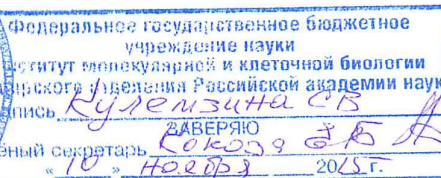 Федеральное государственное бюджетное
учреждение науки
ститут молекулярной и клеточной биологии
ирского отделения Российской академии наук
пись Кулемзина СВ
ЗАВЕРЯЮ
еный секретарь Кокоза ЕБ
« 10 » Ноября 2015 г.